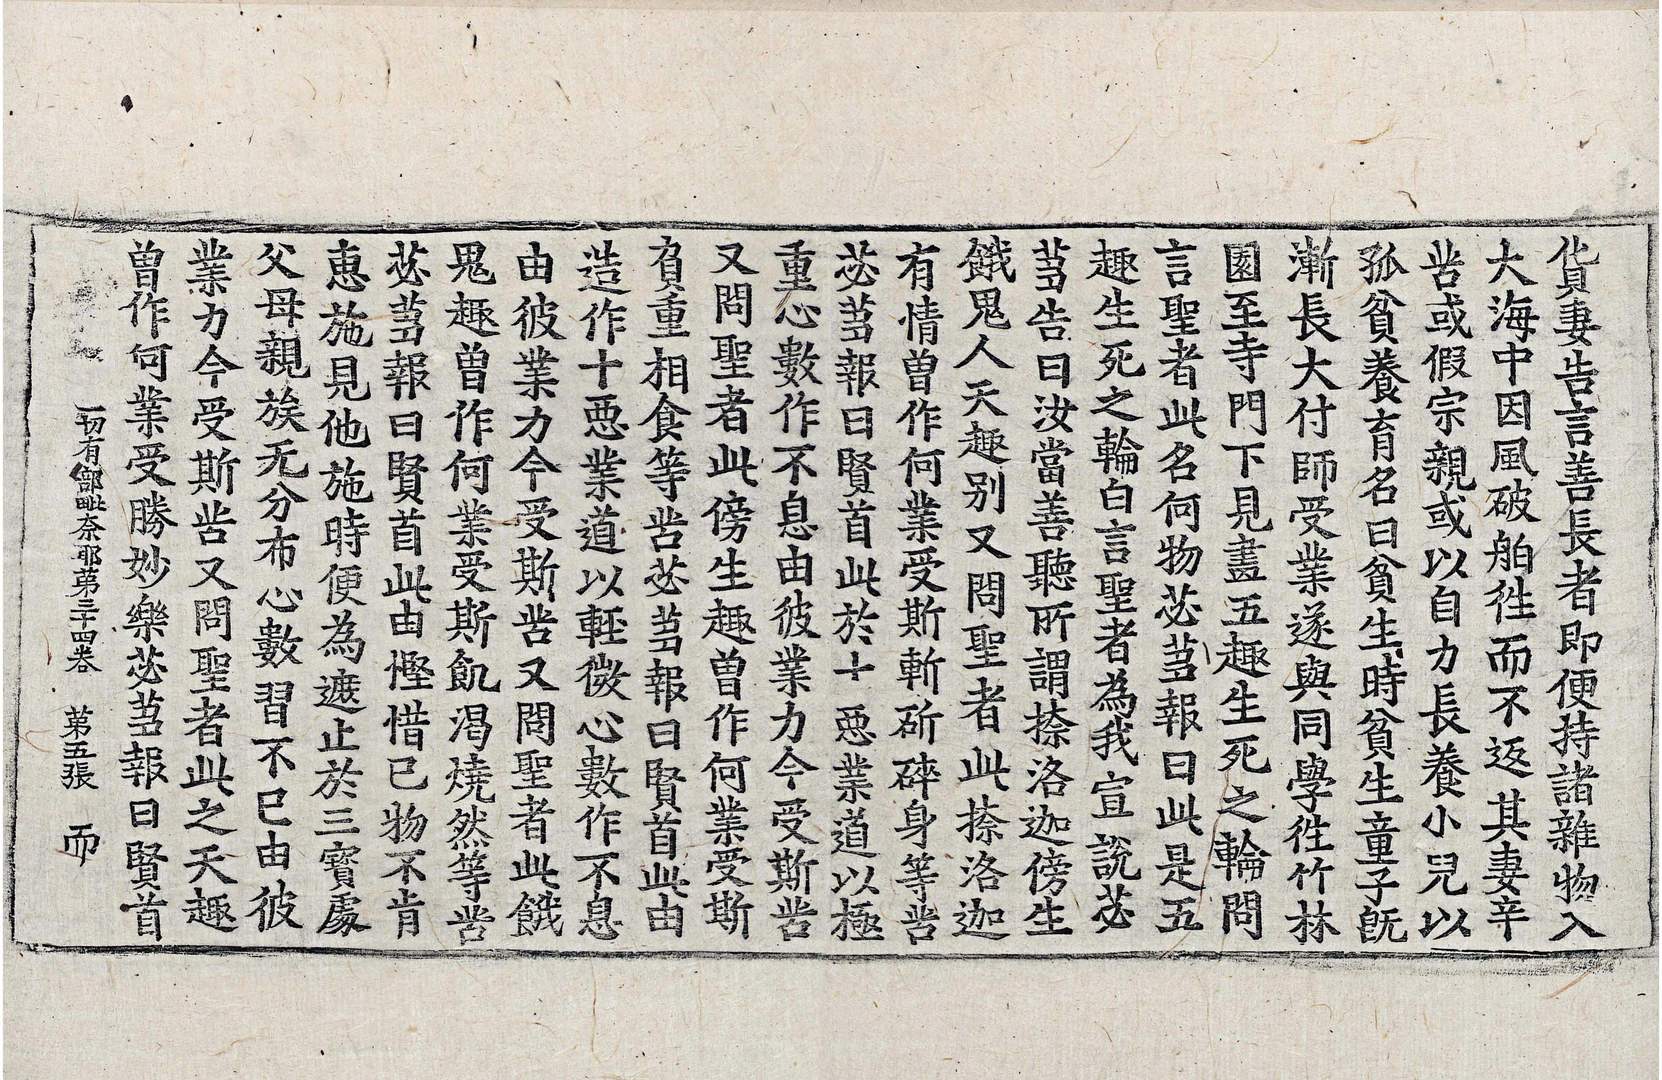 貨妻告言善長者即便持諸雜物入
大海中因風破舶徃而不返其妻辛
苦或假宗親或以自力長養小兒以
孤貧養育名曰貧生時貧生童子旣
漸長大付師受業遂與同學徃竹林
園至寺門下見畫五趣生死之輪問
言聖者此名何物苾芻報曰此是五
趣生死之輪白言聖者為我宣說苾
芻告曰汝當善聽所謂捺洛迦傍生
餓鬼人天趣别又問聖者此捺洛迦
有情曽作何業受斯斬斫碎身等苦
苾芻報曰賢首此於十惡業道以極
重心數作不息由彼業力今受斯苦
又問聖者此傍生趣曽作何業受斯
負重相食等苦苾芻報曰賢首此由
造作十惡業道以輕微心數作不息
由彼業力今受斯苦又問聖者此餓
鬼趣曽作何業受斯飢渴燒然等苦
苾芻報曰賢首此由慳惜已物不肯
惠施見他施時便為遮止於三寶處
父母親族无分布心數習不已由彼
業力今受斯苦又問聖者此之天趣
曽作何業受勝妙樂苾芻報曰賢首
一切有部毗奈耶第三十四卷 第五張 而